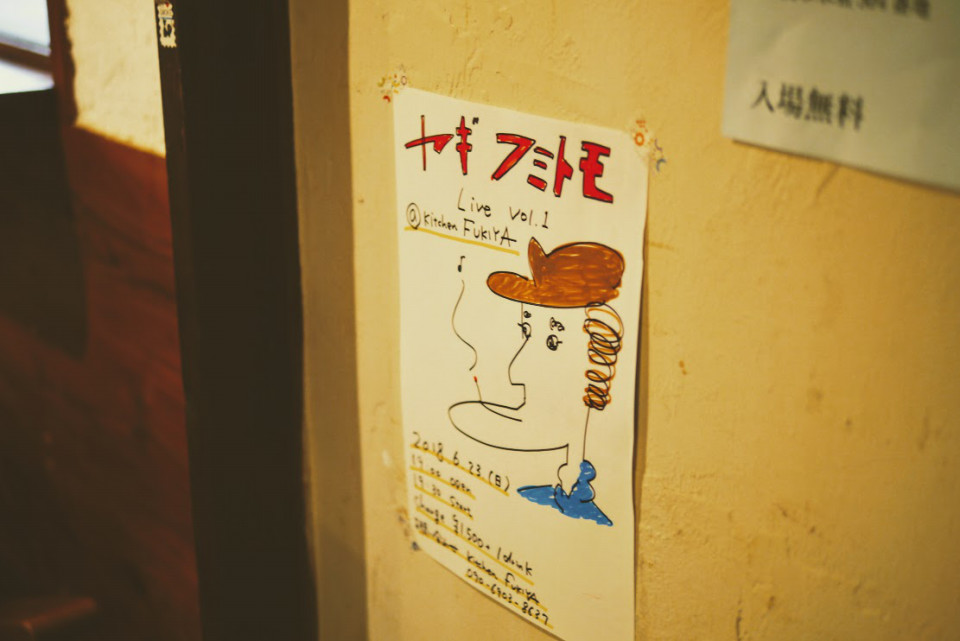 ヤギ フミトモ
Live vol.1
@ Kitchen FUKIYA
2018 6 23 (日)
19:00 open
19:30 start
charge ¥1,500- / drink
Kitchen FUKIYA
090-6903-8637
入場無料